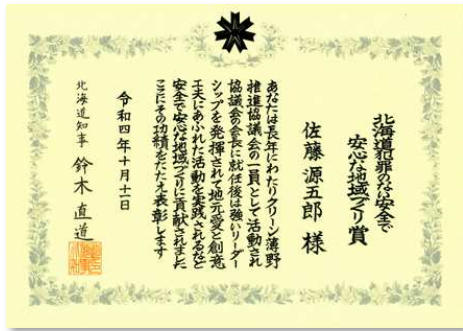 北海道犯罪のない安全で
安心な地域づくり賞
佐藤 源五郎 様
あなたは長年にわたりクリーン薄野
推進協議会の一員として活動され
協議会の会長に就任後は強いリーダー
シップを発揮されて地元愛と創意
工夫にあふれた活動を実践されるなど
安全で安心な地域づくりに貢献されました
ここにその功績をたたえ表彰します
令和四年十月十一日
北海道知事 鈴木 直道